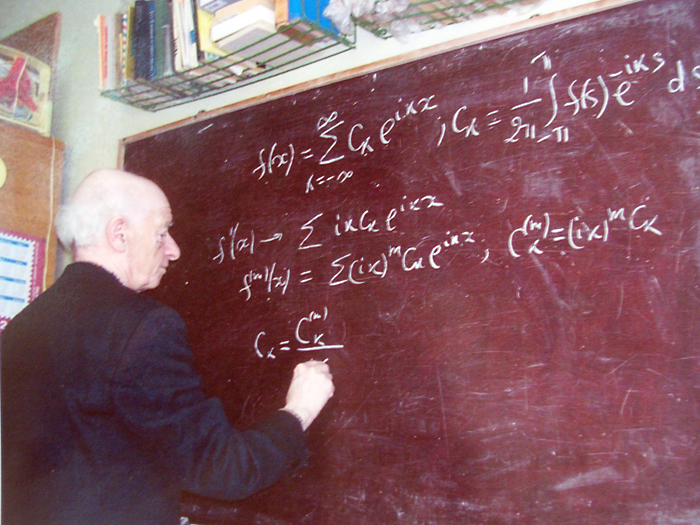 f(x) = ∑_{k=-∞}^{∞} C_k e^{ikx} ; C_k = \frac{1}{2π} ∫_{-π}^{π} f(s) e^{-iks} ds
f'(x) → ∑ ik C_k e^{ikx}
f^{(m)}(x) = ∑ (ik)^m C_k e^{ikx} ; C_k^{(m)} = (ik)^m C_k
C_k = \frac{C_k^{(m)}}{}